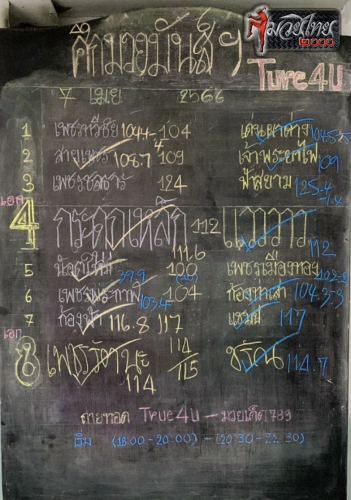 มวยไทย
๒๐๐๐
ศึกมวยมันส์ฯ
Ture4U
7 เมย 2566
1 เพชรวีชัย 104.4 - 104 เด่นผาต่าง
2 สายเพชร 108.7 109 เจ้าพระยาไฟ 109
3 เพชรชลธาร 124 ฟ้าสยาม 125.4
เอก
4 กระดูกเหล็ก 112 แวววาว 112
111.6
5 น้องใหม่ 100 เพชรเมืองทอง
6 104 103.4
7 ก้องฟ้า 116.8 117 แชมป์ 117
เอก
8 เพชรรัตนะ 114 114/115 ชรัณ 114.7
ถ่ายทอด True4U - มวยเด็ด 789
เริ่ม (18:00 - 20:00) - (20:30 - 22:30)